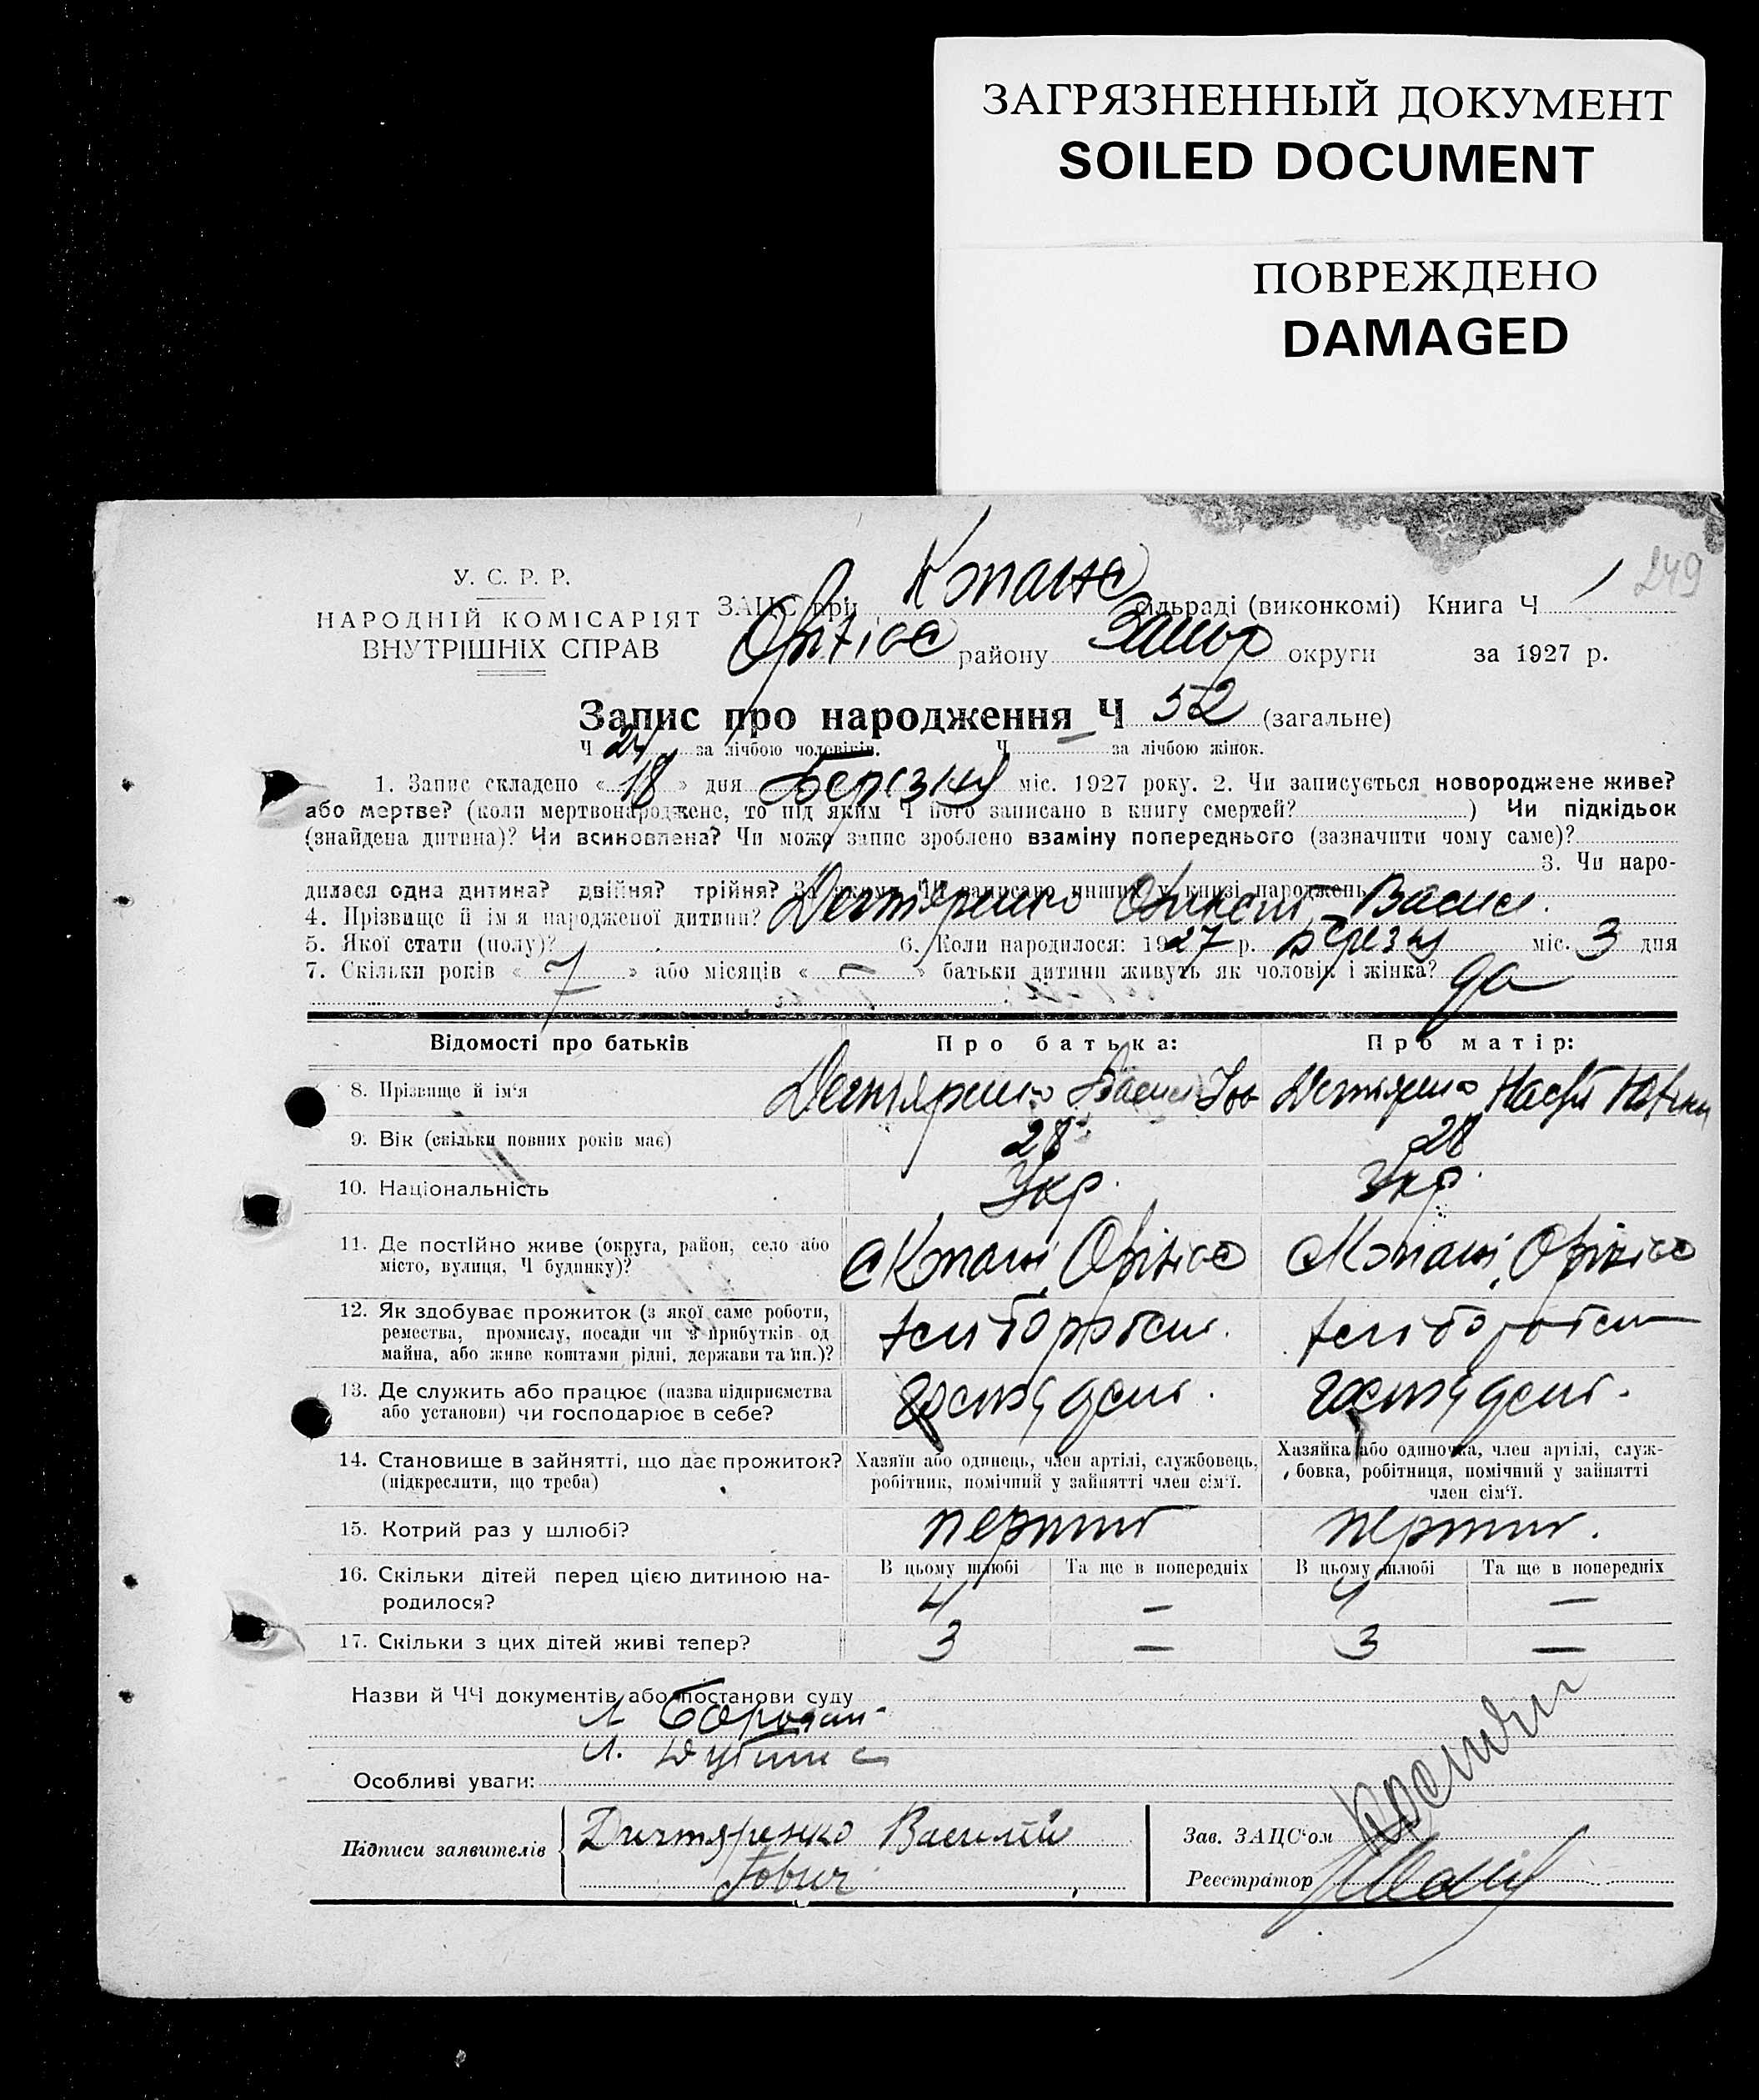 ЗАГРЯЗНЕННЫЙ ДОКУМЕНТ
SOILED DOCUMENT
ПОВРЕЖДЕНО
DAMAGED
249
У. С. Р. Р.
НАРОДНІЙ КОМІСАРІЯТ
ВНУТРІШНІХ СПРАВ
ЗАЦС при сільраді (виконкомі) Книга Ч 1
району Запор округи за 1927 р.
Запис про народження Ч 52 (загальне)
Ч 24 за лічбою чоловіків. Ч — за лічбою жінок.
1. Запис складено « 18 » дня Березня міс. 1927 року. 2. Чи записується новороджене живе?
або мертве? (коли мертвонароджене, то під яким Ч його записано в книгу смертей? ) Чи підкідьок
(знайдена дитина)? Чи всиновлена? Чи може запис зроблено взаміну попереднього (зазначити чому саме)?
3. Чи наро-
дилася одна дитина? двійня? трійня? За якими ЧЧ записано инших у книзі народжень
4. Прізвище й ім'я народженої дитини? Дегтяренко
5. Якої стати (полу)? 6. Коли народилося: 1927 р. Березня міс. 3 дня
7. Скільки років « 7 » або місяців « — » батьки дитини живуть як чоловік і жінка? да
Відомості про батьків Про батька: Про матір:
8. Прізвище й ім'я Дегтяренко Васил Іов Дегтяренко
9. Вік (скільки повних років має) 28 28
10. Національність Укр. Укр.
11. Де постійно живе (округа, район, село або
місто, вулиця, Ч будинку)?
12. Як здобуває прожиток (з якої саме роботи,
ремества, промислу, посади чи з прибутків од
майна, або живе коштами рідні, держави та ин.)?
13. Де служить або працює (назва підприємства
або установи) чи господарює в себе?
14. Становище в зайнятті, що дає прожиток?
(підкреслити, що треба)
Хазяїн або одинець, член артілі, службовець,
робітник, помічний у зайнятті член сім'ї.
Хазяйка або одиночка, член артілі, служ-
бовка, робітниця, помічний у зайнятті
член сім'ї.
15. Котрий раз у шлюбі? перший перший.
В цьому шлюбі Та ще в попередніх В цьому шлюбі Та ще в попередніх
16. Скільки дітей перед цією дитиною на-
родилося? 4 — 4 —
17. Скільки з цих дітей живі тепер? 3 — 3 —
Назви й ЧЧ документів або постанови суду
Особливі уваги:
Підписи заявителів Дигтяренко Василій
Іович
Зав. ЗАЦС'ом
Реєстратор